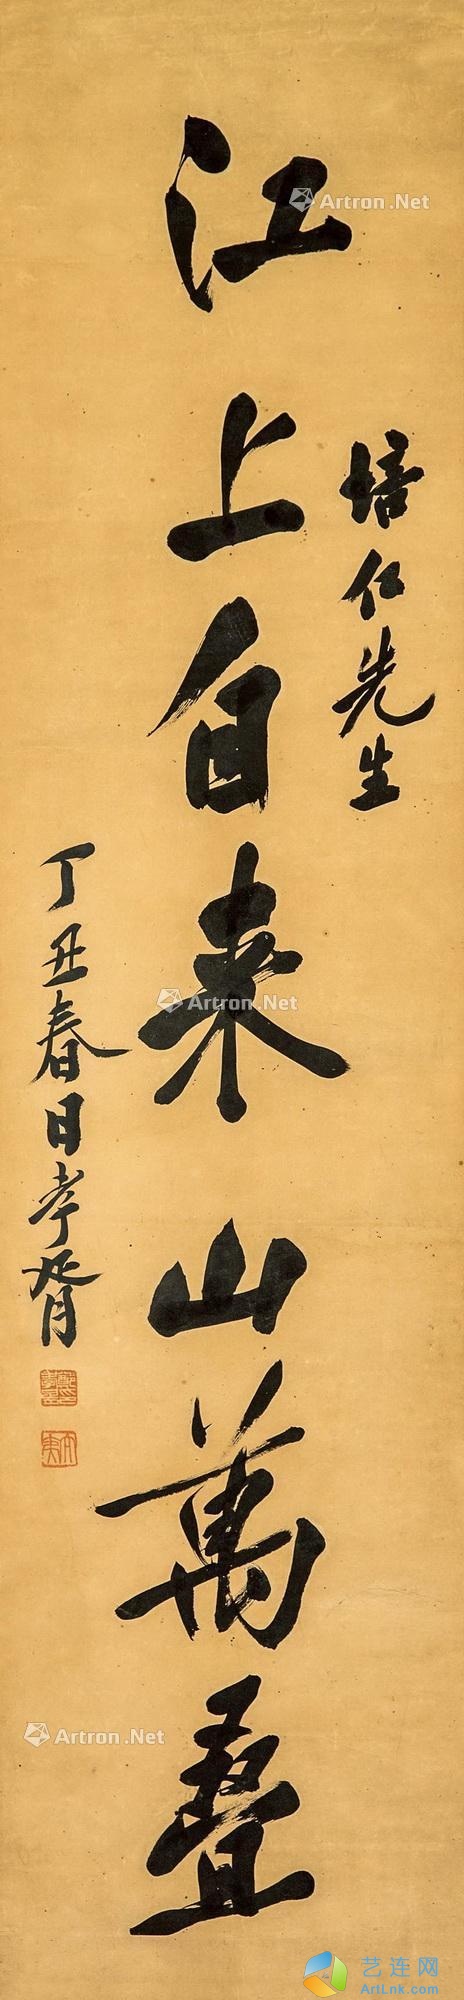 培仁先生
江上自来山萬叠
丁丑春日孝胥
Artron.Net
Artron.Net
Artron.Net
艺连网
ArtLnk.com